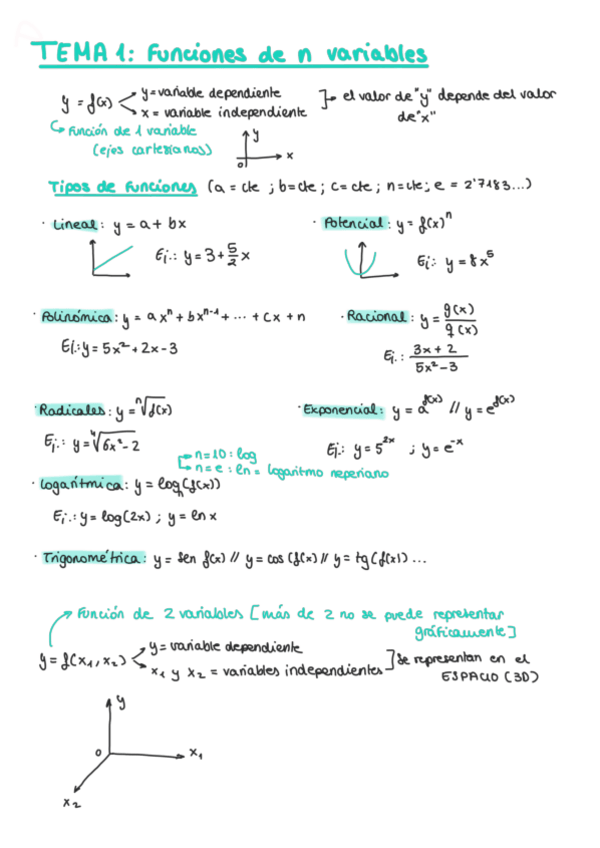 TEMA 1: Funciones de n variables
y = f(x) y = variable dependiente
x = variable independiente
el valor de "y" depende del valor
de "x"
Función de 1 variable
(ejes cartesianos)
y
0
x
Tipos de funciones (a = cte ; b = cte ; c = cte ; n = cte ; e = 2'7183...)
· Lineal: y = a + bx
Ej.: y = 3 + 5/2 x
· Potencial: y = f(x)^n
Ej: y = 8x^5
· Polinómica: y = ax^n + bx^n-1 + ... + cx + n
Ej.: y = 5x² + 2x - 3
· Racional: y = g(x)/q(x)
Ej.: 3x + 2 / 5x² - 3
· Radicales: y = n√f(x)
Ej.: y = 4√6x² - 2
· Exponencial: y = a^f(x) // y = e^f(x)
Ej.: y = 5^2x ; y = e^-x
n = 10 : log
n = e : ln = logaritmo neperiano
· Logarítmica: y = logn(f(x))
Ej.: y = log(2x) ; y = ln x
· Trigonométrica: y = sen f(x) // y = cos (f(x) // y = tg(f(x)) ...
Función de 2 variables [más de 2 no se puede representar
gráficamente]
y = f(x1, x2) y = variable dependiente
x1 y x2 = variables independientes
Se representan en el
ESPACIO (3D)
y
0
x1
x2